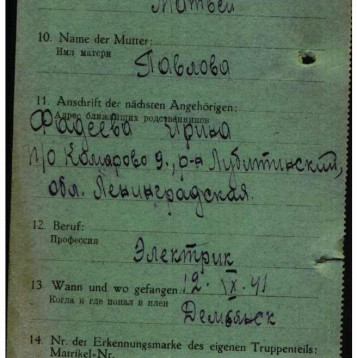 Матвей
10. Name der Mutter:
Имя матери
Павлова
11. Anschrift der nächsten Angehörigen:
Адрес ближайших родственников
Фадеева Ирина
п/о Комарово д., р-н Лубитинский,
обл. Ленинградская.
12. Beruf:
Профессия
Электрик
13. Wann und wo gefangen 12. IX. 41
Когда и где попал в плен
Демьянск
14. Nr. der Erkennungsmarke des eigenen Truppenteils:
Matrikel-Nr.